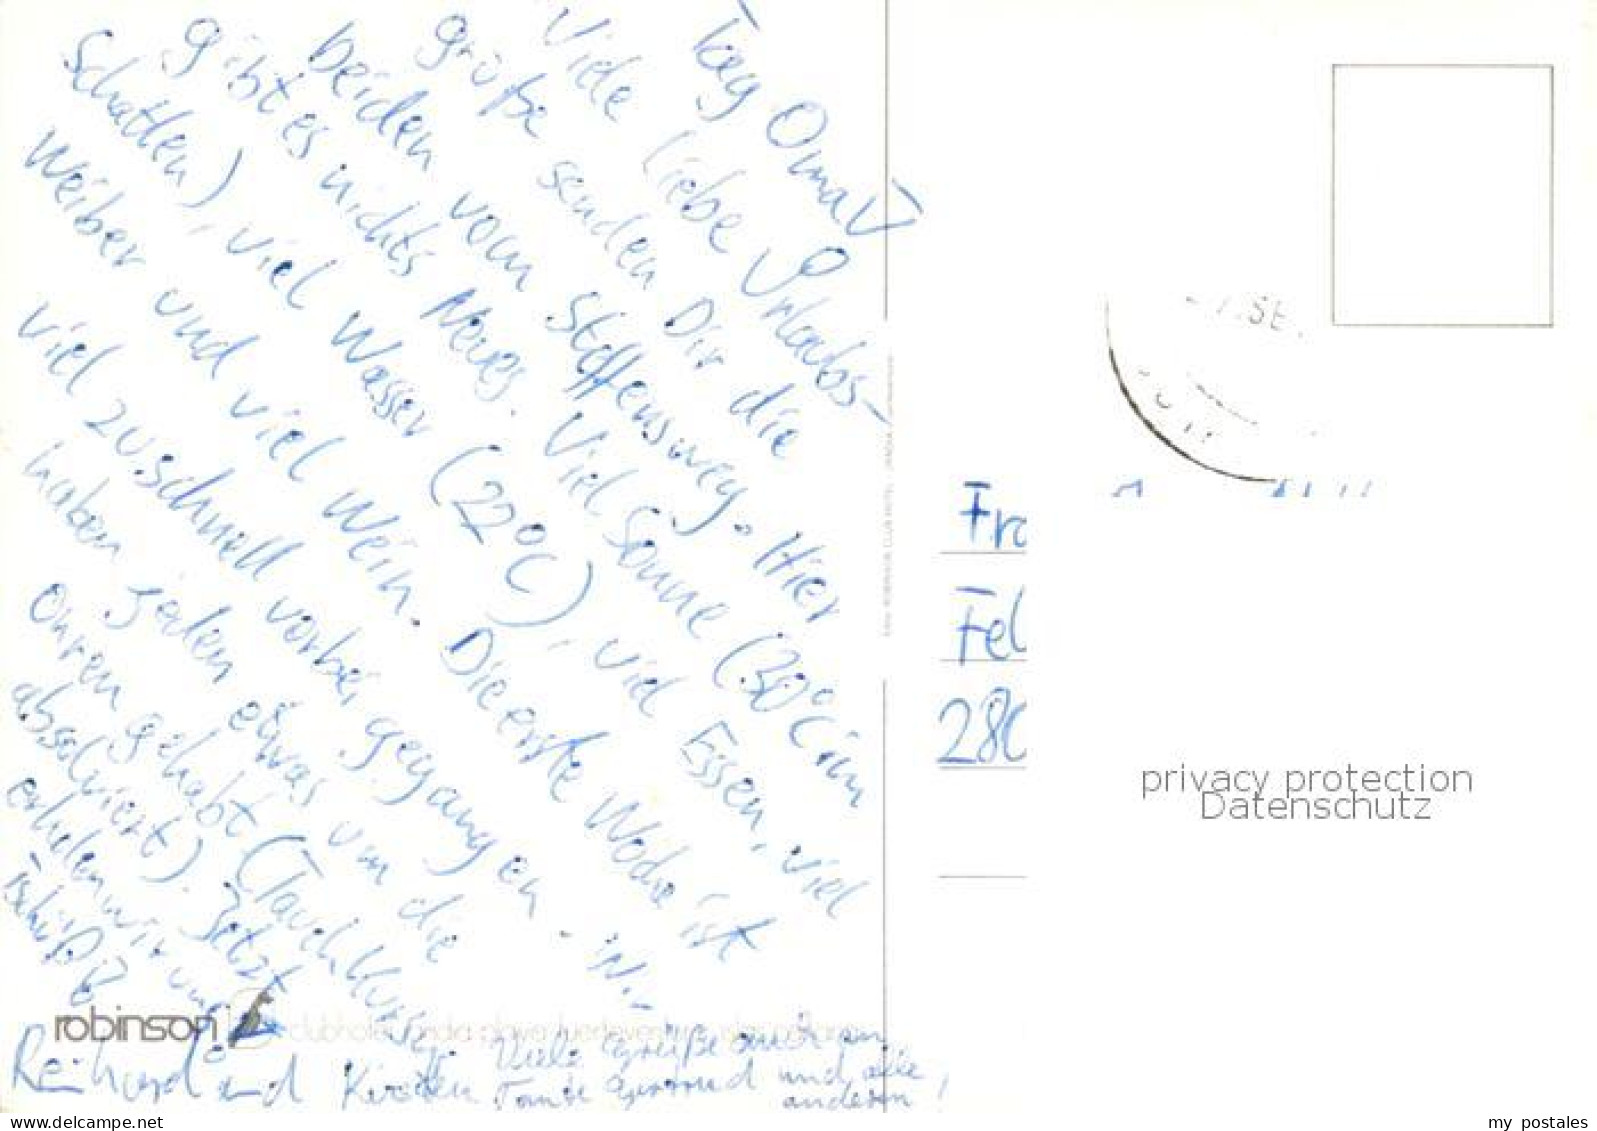 Tag Oma V
Viele liebe Urlaubs-
grüße senden Dir die
beiden vom Steffensweg. Hier
gibt es nichts Neues. Viel Sonne (30°C im
Schatten), viel Wasser (22°C), viel Essen, viel
Weiber und viel Wein. Die erste Woche ist
viel zu schnell vorbei gegangen. Wir
haben jeden etwas um die
Ohren gehabt (Tauchkurs
absolviert). Jetzt
erholen wir uns
Tschüß
Reinhard und Kirsten
Viele Grüße auch an
Tante Gertrud und alle
anderen!
robinson
clubhotel jandia playa fuerteventura
ROBINSON CLUB HOTEL JANDIA
Fra
Fel
280
privacy protection
Datenschutz
www.delcampe.net
my_postales